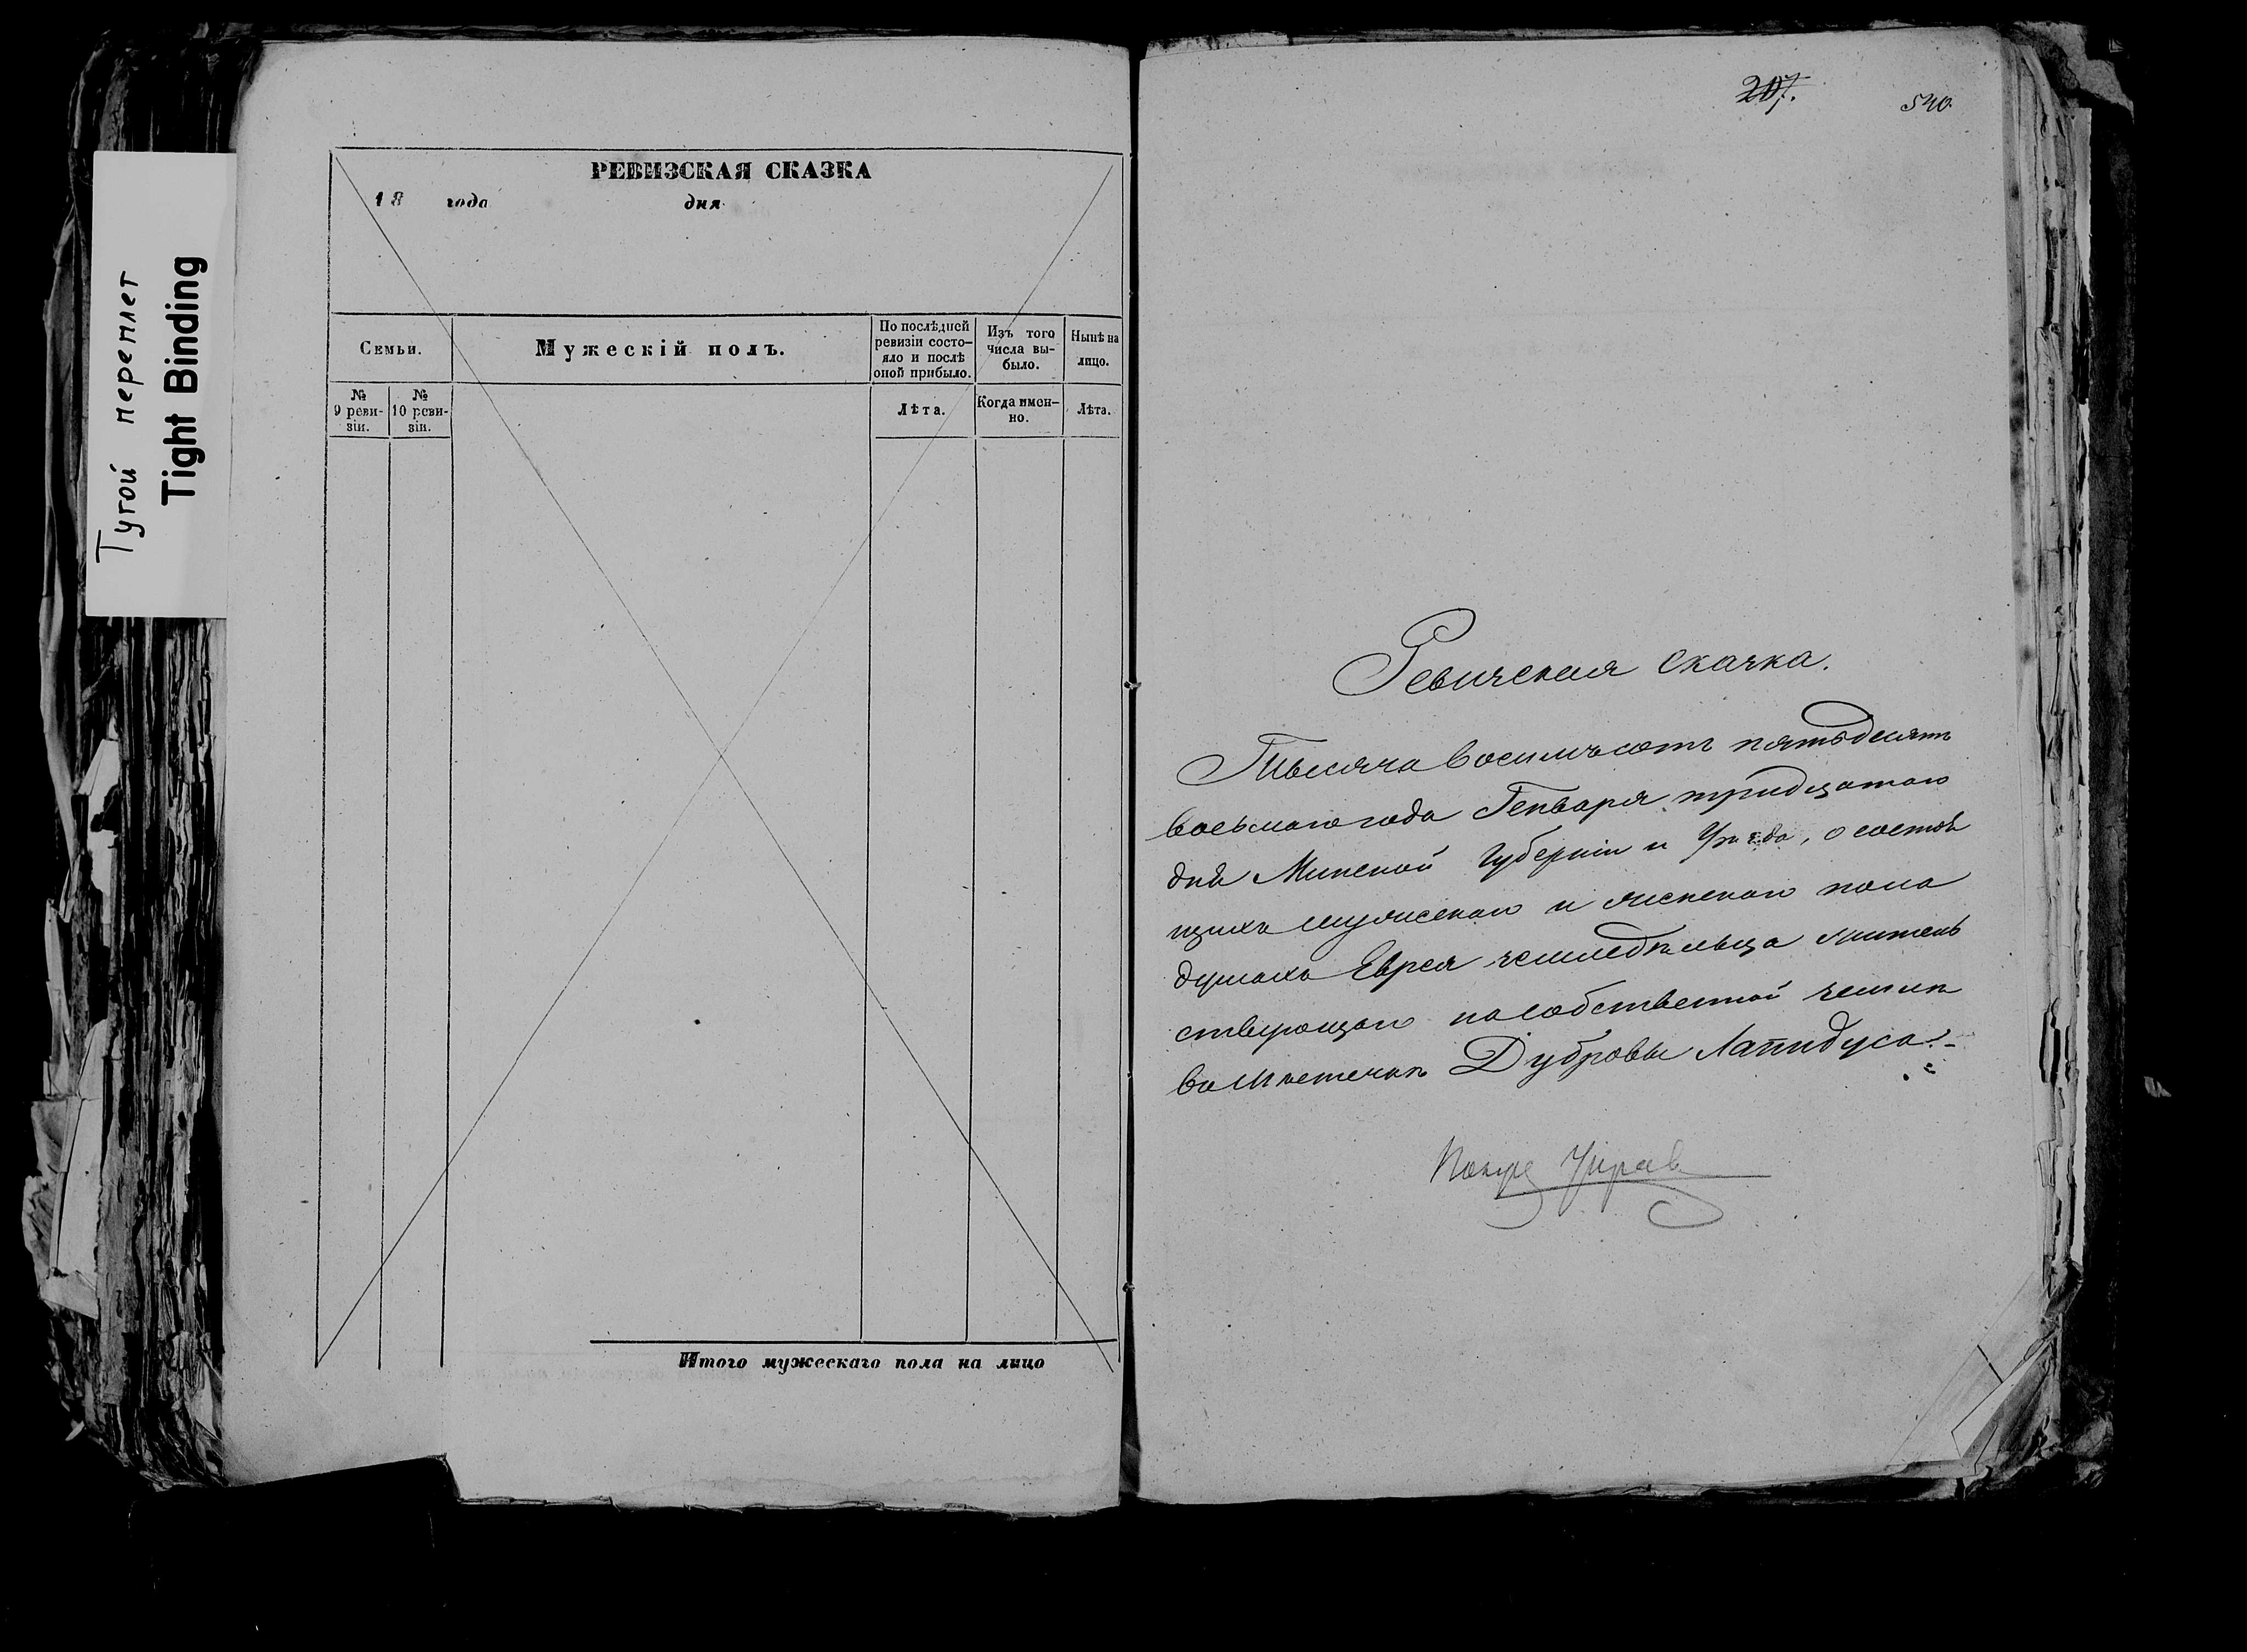 Тугой переплет
Tight Binding
РЕВИЗСКАЯ СКАЗКА
18 года дня
Семьи.
Мужескій полъ.
По послѣдней
ревизіи состо-
яло и послѣ
оной прибыло.
Изъ того
числа вы-
было.
Нынѣ на
лицо.
№
9 реви-
зіи.
№
10 реви-
зіи.
Лѣта.
Когда имен-
но.
Лѣта.
Итого мужескаго пола на лицо
207.
540.
Ревизская сказка.
Тысяча восемьсотъ пятьдесятъ
восьмаго года Генваря тридцатаго
дня Минской Губерніи и Уѣзда, о состоя
щихъ мужескаго и женскаго пола
душахъ Еврея земледѣльца житель
ствующаго на собственной землѣ
въ Мѣстечкѣ Дубровы Лапидуса.